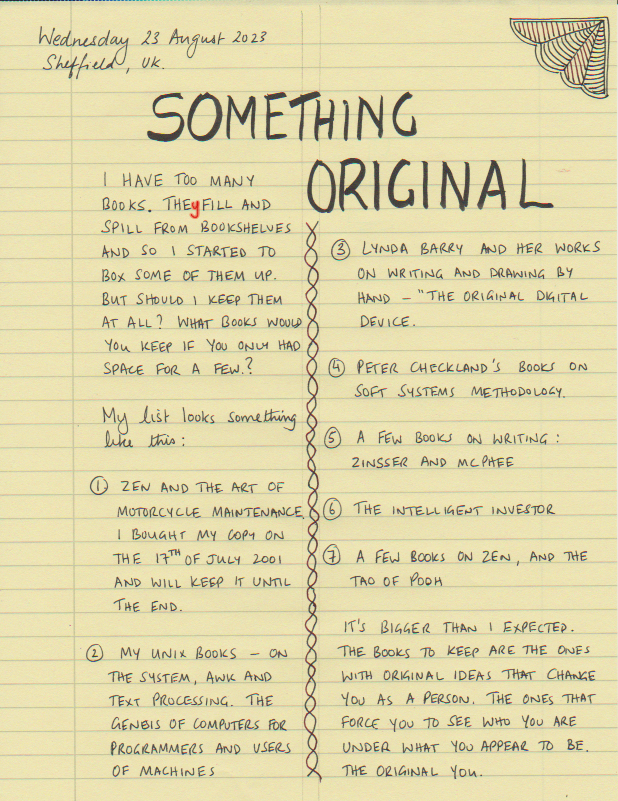 Wednesday 23 August 2023
Sheffield, UK.
SOMETHING
ORIGINAL
I HAVE TOO MANY
BOOKS. THEy FILL AND
SPILL FROM BOOKSHELVES
AND SO I STARTED TO
BOX SOME OF THEM UP.
BUT SHOULD I KEEP THEM
AT ALL? WHAT BOOKS WOULD
YOU KEEP IF YOU ONLY HAD
SPACE FOR A FEW.?
My list looks something
like this:
① ZEN AND THE ART OF
MOTORCYCLE MAINTENANCE.
I BOUGHT MY COPY ON
THE 17TH OF JULY 2001
AND WILL KEEP IT UNTIL
THE END.
② MY UNIX BOOKS – ON
THE SYSTEM, AWK AND
TEXT PROCESSING. THE
GENBIS OF COMPUTERS FOR
PROGRAMMERS AND USERS
OF MACHINES
③ LYNDA BARRY AND HER WORKS
ON WRITING AND DRAWING BY
HAND – "THE ORIGINAL DIGITAL
DEVICE.
④ PETER CHECKLAND'S BOOKS ON
SOFT SYSTEMS METHODOLOGY.
⑤ A FEW BOOKS ON WRITING:
ZINSSER AND MCPHEE
⑥ THE INTELLIGENT INVESTOR
⑦ A FEW BOOKS ON ZEN, AND THE
TAO OF POOH
IT'S BIGGER THAN I EXPECTED.
THE BOOKS TO KEEP ARE THE ONES
WITH ORIGINAL IDEAS THAT CHANGE
YOU AS A PERSON. THE ONES THAT
FORCE YOU TO SEE WHO YOU ARE
UNDER WHAT YOU APPEAR TO BE.
THE ORIGINAL YOU.